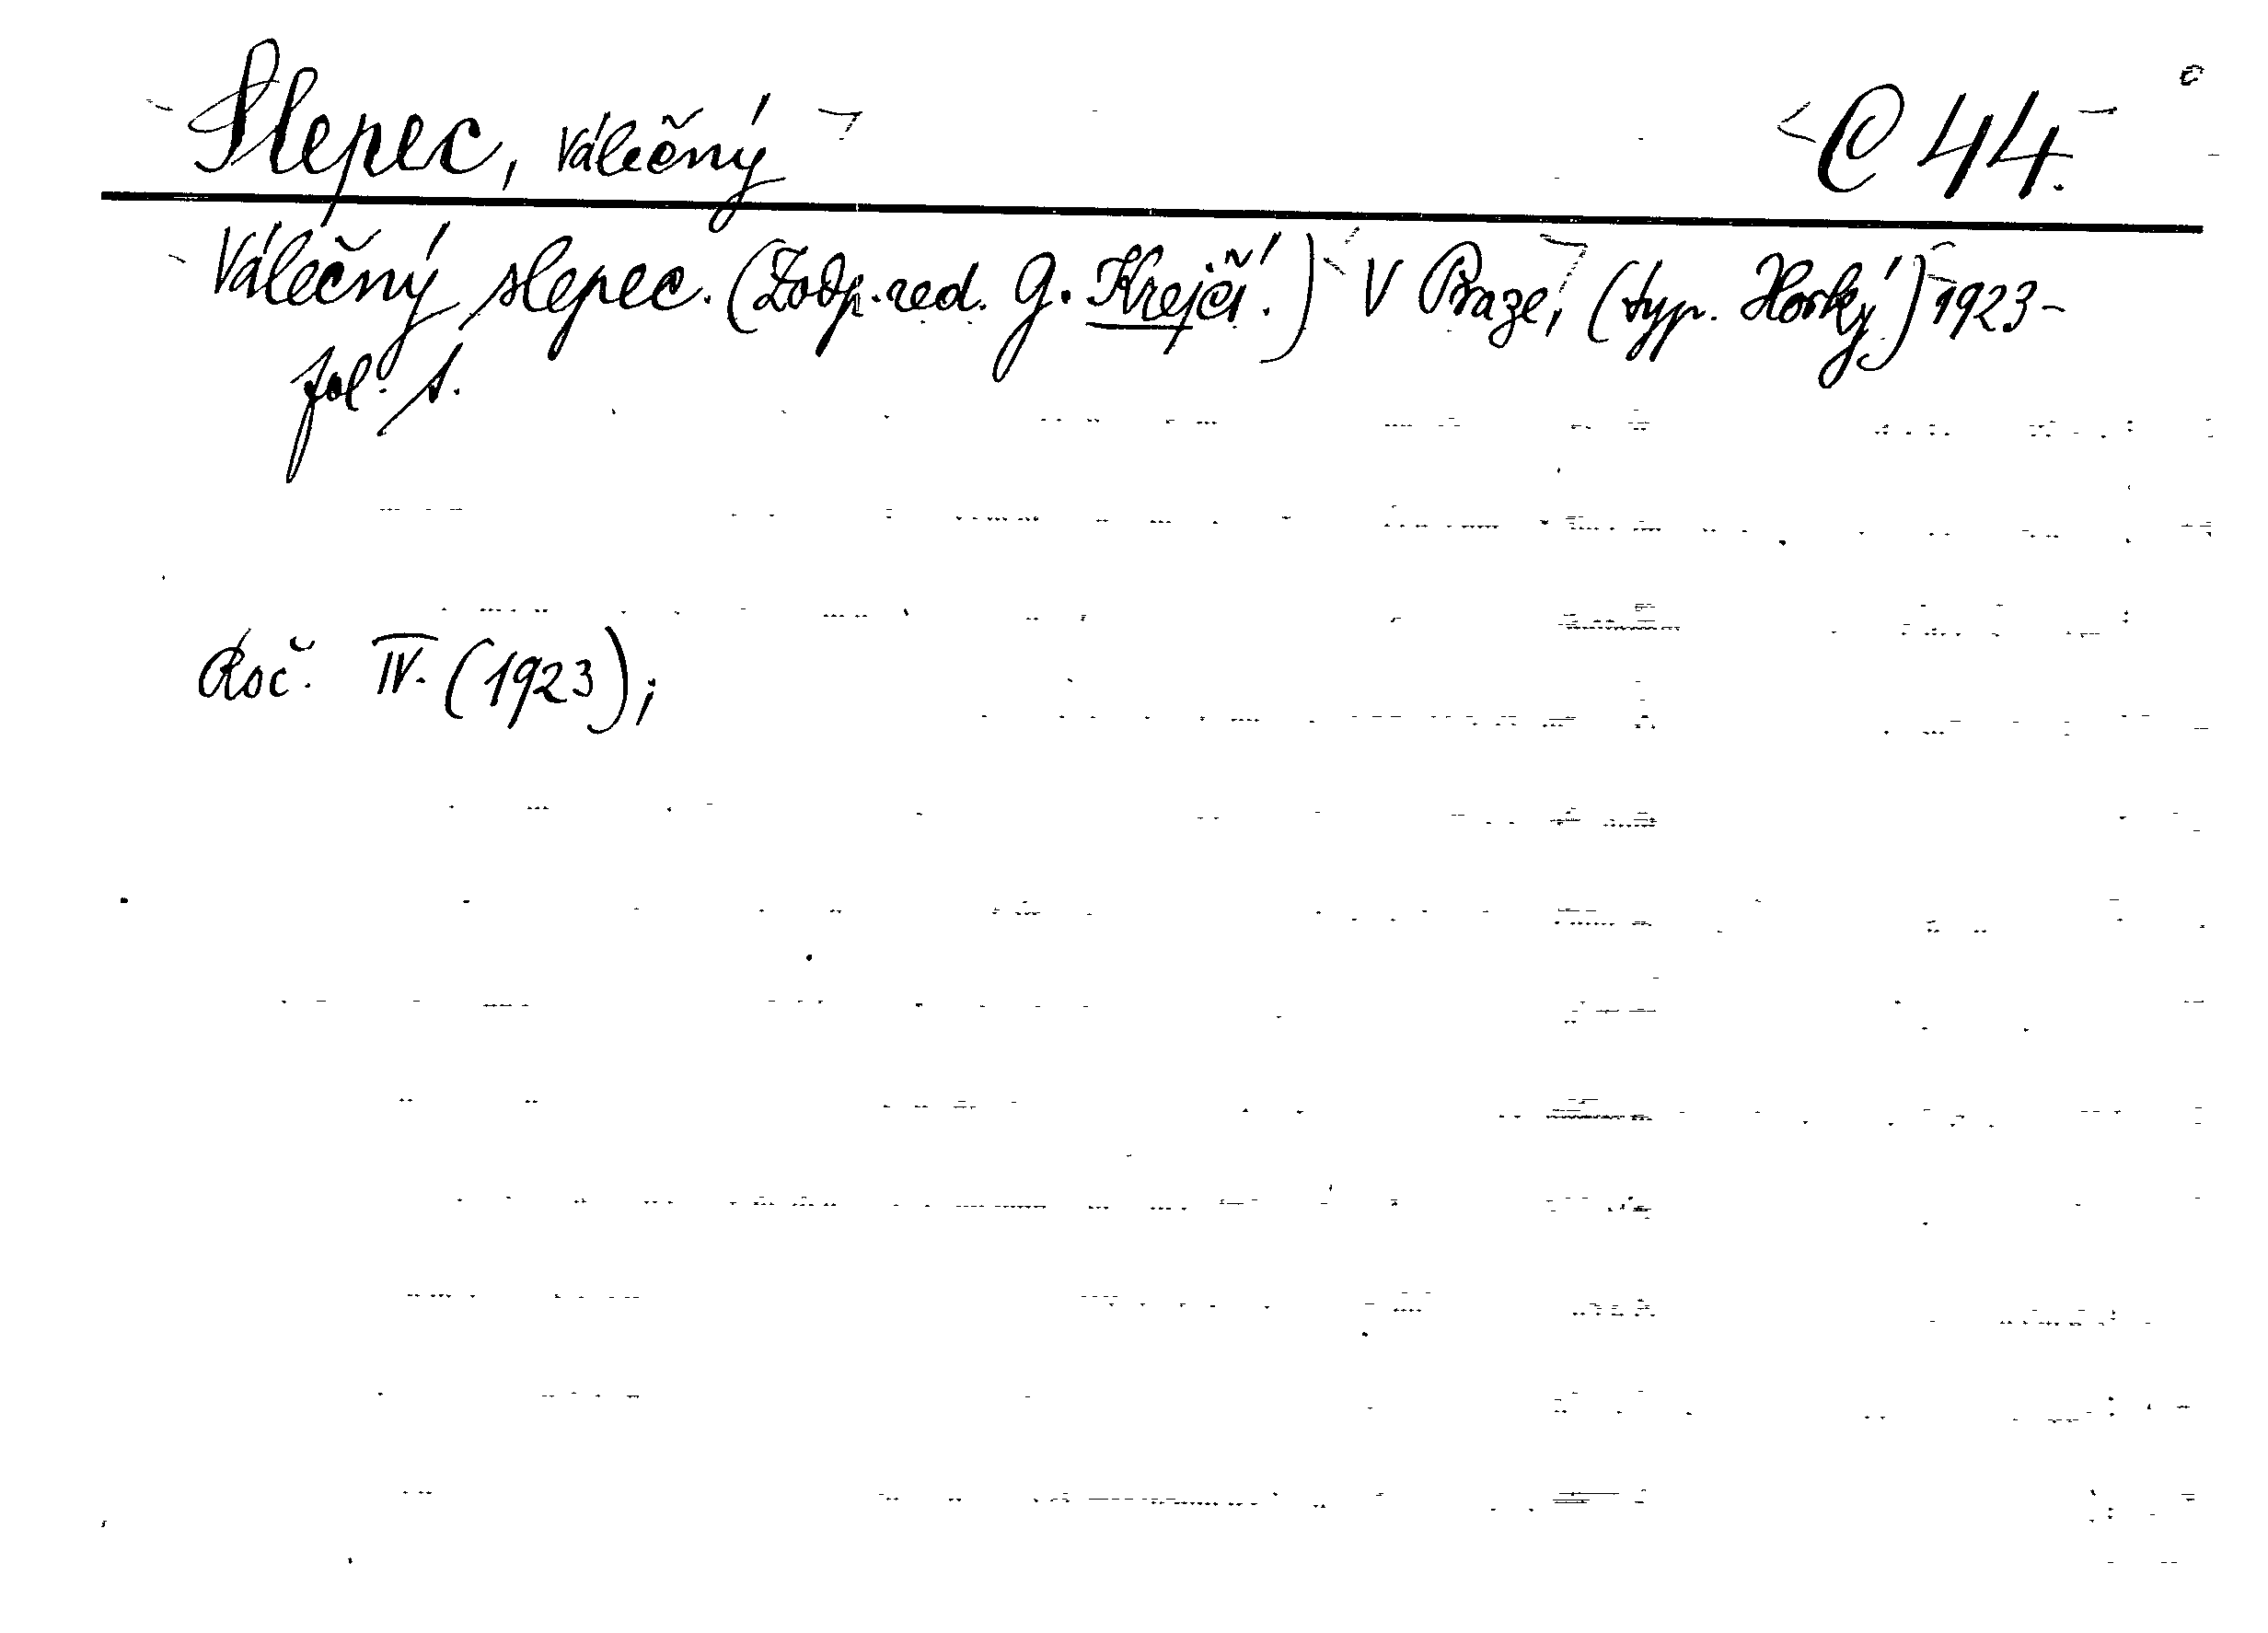 Slepec, Válečný C 44.
Válečný slepec. (Zodp. red. G. Krejčí.) V Praze, (typ. Horký) 1923-
fol. s.
Roč. IV. (1923);